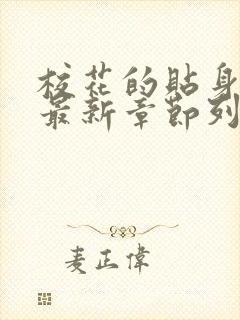 校花的貼身
最新章節列
麦正偉